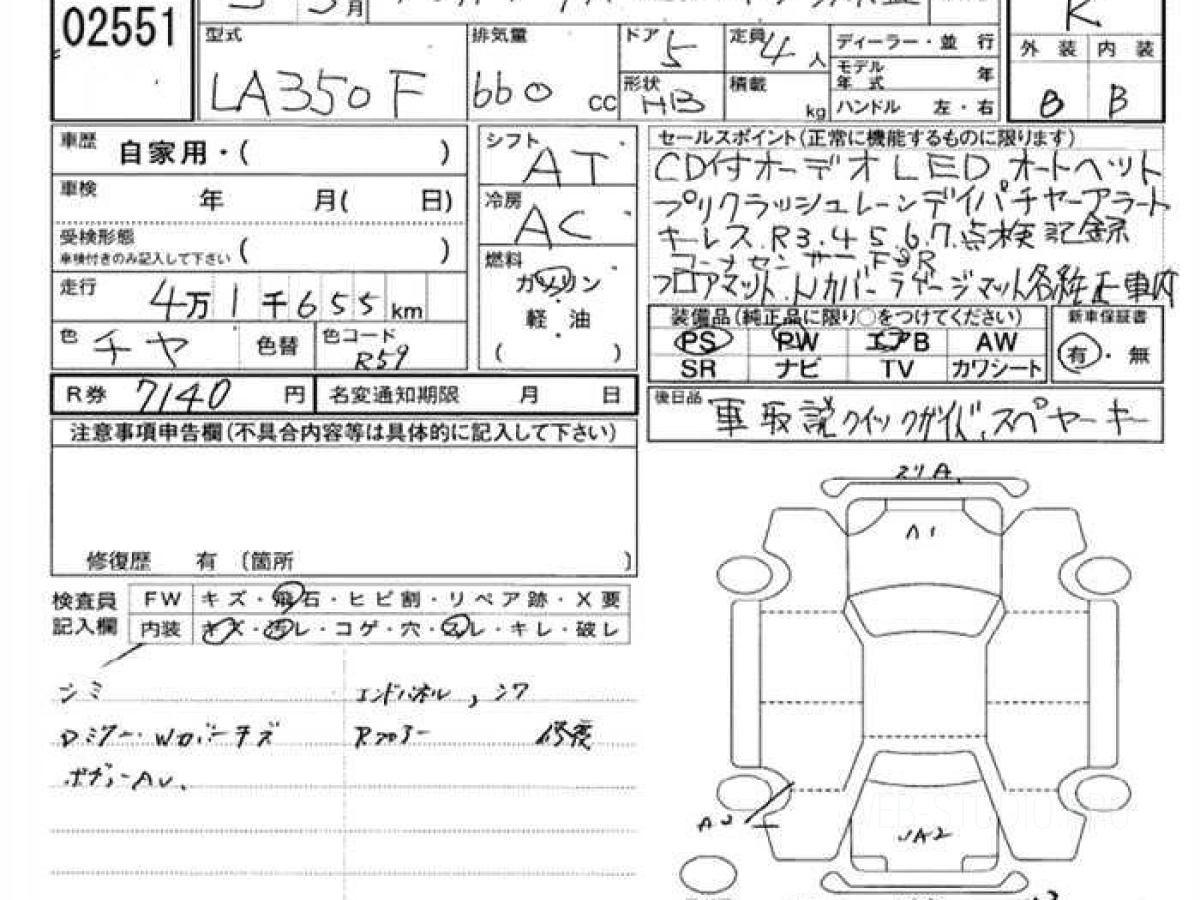 02551
月
R
型式
LA350F
排気量
660
cc
ドア
5
定員
4
人
形状
HB
積載
kg
ディーラー・並 行
モデル
年 式
年
ハンドル 左・右
外 装
内 装
B
車歴
自家用・( )
車検
年 月( 日)
受検形態
車検付きのみ記入して下さい ( )
走行
4万1千655km
色
チヤ
色替
色コード
R59
シフト
AT
冷房
AC
燃料
ガソリン
軽 油
( )
セールスポイント(正常に機能するものに限ります)
CD付オーデオ LED オートヘット
プリクラッシュレーンデイパチヤーアラート
キーレス R3.4 5 6.7.点検記録
コーナセンサーF&R
フロアマット.Nカバーラゲージマット各純正車内
装備品(純正品に限り○をつけてください)
PS PW エアB AW
SR ナビ TV カワシート
新車保証書
有・無
R券
7140
円
名変通知期限 月 日
後日品
車取説クイックガイド、スペヤーキー
注意事項申告欄(不具合内容等は具体的に記入して下さい)
修復歴 有 〔箇所 〕
検査員
記入欄
FW キズ・飛石・ヒビ割・リペア跡・X要
内装 キズ・汚レ・コゲ・穴・スレ・キレ・破レ
シミ
エンドパネル,シワ
Rフロアー
修復
スリA.
A1
A2